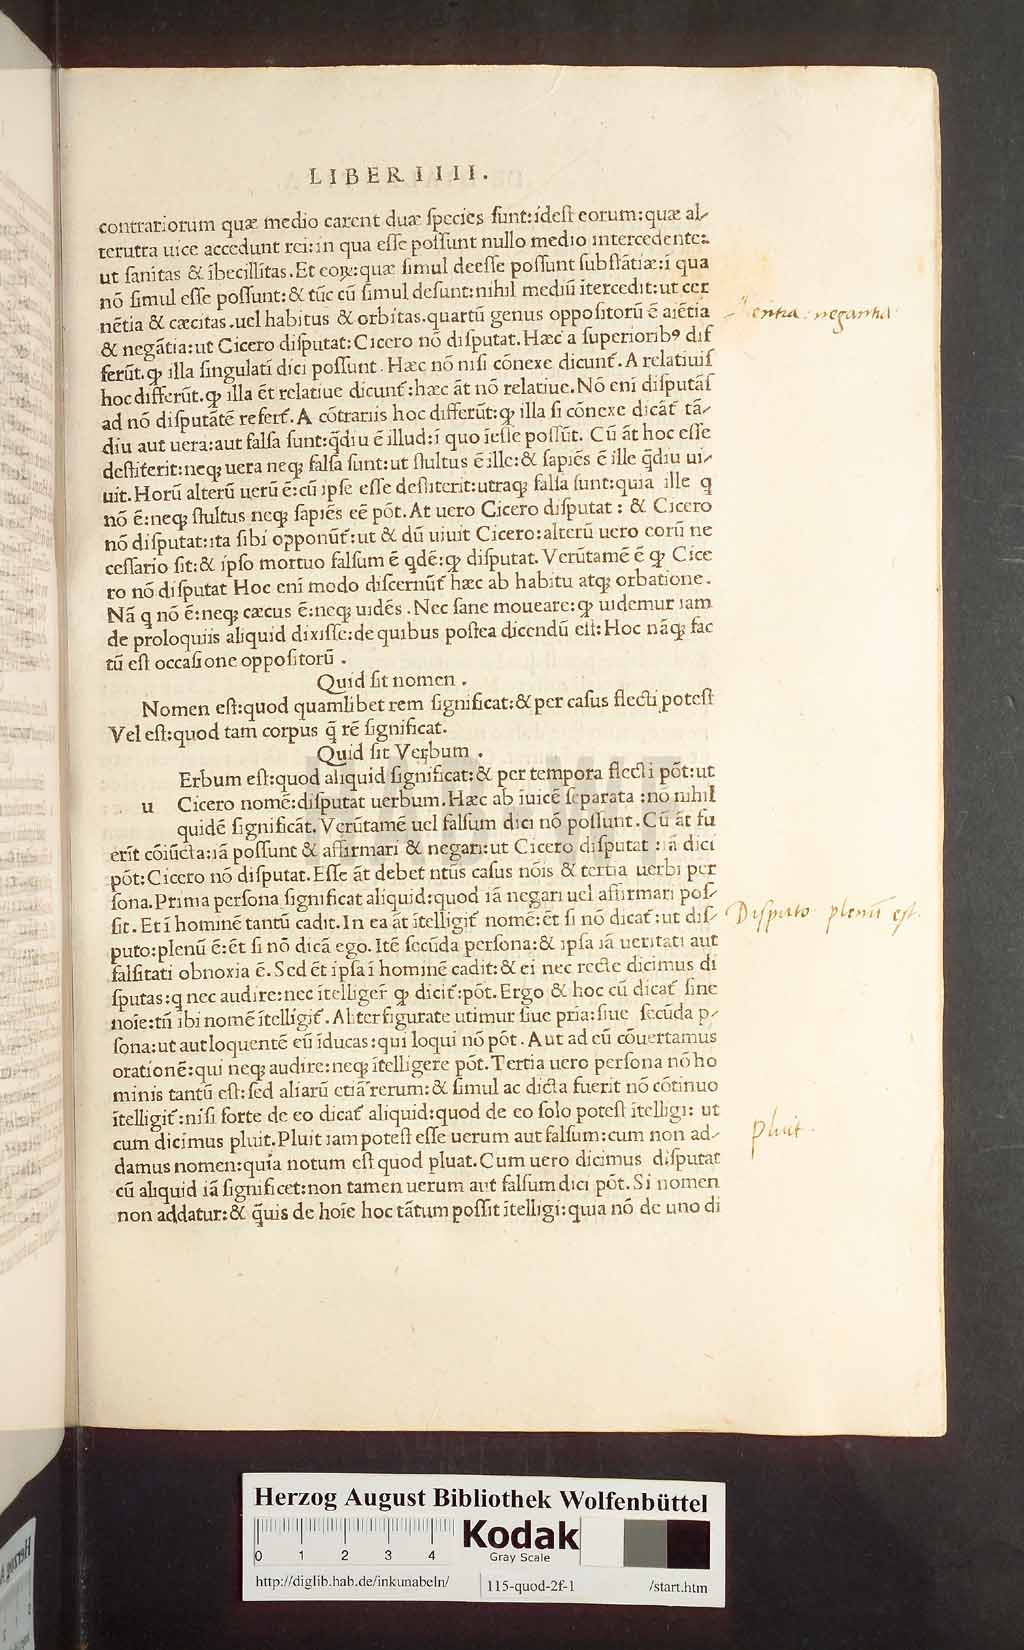 LIBER IIII.
contrariorum quæ medio carent duæ ſpecies ſunt:ideſt eorum:quæ al-
terutra uice accedunt rei:in qua eſſe poſſunt nullo medio intercedente:
ut ſanitas & ĩbecillitas.Et eoꝝ:quæ ſimul deeſſe poſſunt ſubſtãtiæ:ĩ qua
nõ ſimul eſſe poſſunt:& tũc cũ ſimul deſunt:nihil mediũ ĩtercedit:ut cer
nẽtia & cæcitas.uel habitus & orbitas.quartũ genus oppoſitorũ ẽ aiẽtia
& negãtia:ut Cicero diſputat:Cicero nõ diſputat.Hæc a ſuperioribꝰ dif
ferũt.ꝙ illa ſingulati dici poſſunt.Hæc nõ niſi cõnexe dicunt̃.A relatiuiſ
hoc differũt.ꝙ illa ẽt relatiue dicunt̃:hæc ãt nõ relatiue.Nõ eni diſputãſ
ad nõ diſputãtẽ refert̃.A cõtrariis hoc differũt:ꝙ illa ſi cõnexe dicãt̃ tã-
diu aut uera:aut falſa ſunt:q̃diu ẽ illud:ĩ quo ĩeſſe poſſũt. Cũ ãt hoc eſſe
deſtiterit:neqꝫ uera neqꝫ falſa ſunt:ut ſtultus ẽ ille:& ſapiẽs ẽ ille q̃diu ui-
uit.Horũ alterũ uerũ ẽ:cũ ipſe eſſe deſtiterit:utraqꝫ falſa ſunt:quia ille q
nõ ẽ:neqꝫ ſtultus neqꝫ ſapiẽs eẽ põt.At uero Cicero diſputat: & Cicero
nõ diſputat:ita ſibi opponũt̃:ut & dũ uiuit Cicero:alterũ uero eorũ ne
ceſſario ſit:& ipſo mortuo falſum ẽ qdẽ:ꝙ diſputat.Verũtamẽ ẽ ꝙ Cice
ro nõ diſputat Hoc eni modo diſcernũt̃ hæc ab habitu atqꝫ orbatione.
Nã q nõ ẽ:neqꝫ cæcus ẽ:neqꝫ uidẽs.Nec ſane moueare:ꝙ uidemur iam
de proloquiis aliquid dixiſſe:de quibus poſtea dicendũ eſt:Hoc nãqꝫ fac
tũ eſt occaſione oppoſitorũ.
Quid ſit nomen.
Nomen eſt:quod quamlibet rem ſignificat:& per caſus flecti poteſt
Vel eſt:quod tam corpus q̃ rẽ ſignificat.
Quid ſit Verbum.
Erbum eſt:quod aliquid ſignificat:& per tempora flecti põt:ut
u Cicero nomẽ:diſputat uerbum.Hæc ab ĩuicẽ ſeparata:nõ nihil
quidẽ ſignificãt.Verũtamẽ uel falſum dici nõ poſſunt.Cũ ãt fu
erĩt cõiũcta:iã poſſunt & affirmari & negari:ut Cicero diſputat:iã dici
põt:Cicero nõ diſputat.Eſſe ãt debet ntũs caſus nõis & tertia uerbi per
ſona.Prima perſona ſignificat aliquid:quod iã negari uel affirmari poſ-
ſit.Et ĩ hominẽ tantũ cadit.In ea ãt ĩtelligit̃ nomẽ:ẽt ſi nõ dicat̃:ut diſ-
puto:plenũ ẽ:ẽt ſi nõ dicã ego.Itẽ ſecũda perſona:& ipſa iã ueritati aut
falſitati obnoxia ẽ.Sed ẽt ipſa ĩ hominẽ cadit:& ei nec recte dicimus di
ſputas:q nec audire:nec ĩtelliger̃ ꝙ dicit̃:põt.Ergo & hoc cũ dicat̃ ſine
noĩe:tñ ibi nomẽ ĩtelligit̃.Aliter figurate utimur ſiue pria:ſiue ſecũda p-
ſona:ut aut loquentẽ eũ ĩducas:qui loqui nõ põt.Aut ad eũ cõuertamus
orationẽ:qui neqꝫ audire:neqꝫ ĩtelligere põt.Tertia uero perſona nõ ho
minis tantũ eſt:ſed aliarũ etiã rerum:& ſimul ac dicta fuerit nõ cõtinuo
ĩtelligit̃:niſi forte de eo dicat̃ aliquid:quod de eo ſolo poteſt ĩtelligi: ut
cum dicimus pluit.Pluit iam poteſt eſſe uerum aut falſum:cum non ad-
damus nomen:quia notum eſt quod pluat.Cum uero dicimus diſputat
cũ aliquid iã ſignificet:non tamen uerum aut falſum dici põt.Si nomen
non addatur:& q̃uis de hoĩe hoc tãtum poſſit ĩtelligi:quia nõ de uno di
negantia
Disputo plenũ est.
pluit.
HAB-WF
Herzog August Bibliothek Wolfenbüttel
0 1 2 3 4
Kodak
Gray Scale
http://diglib.hab.de/inkunabeln/
115-quod-2f-1
/start.htm